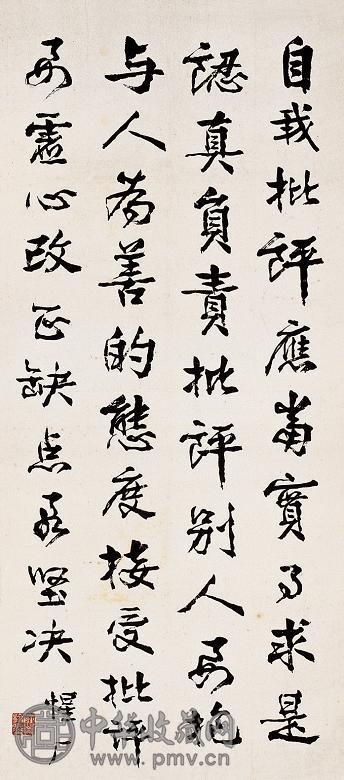 自我批評應當實事求是
認真負責批評別人要抱
与人為善的態度接受批評
要虛心改正缺点要堅決
惺广
中华收藏网
www.pmv.cn